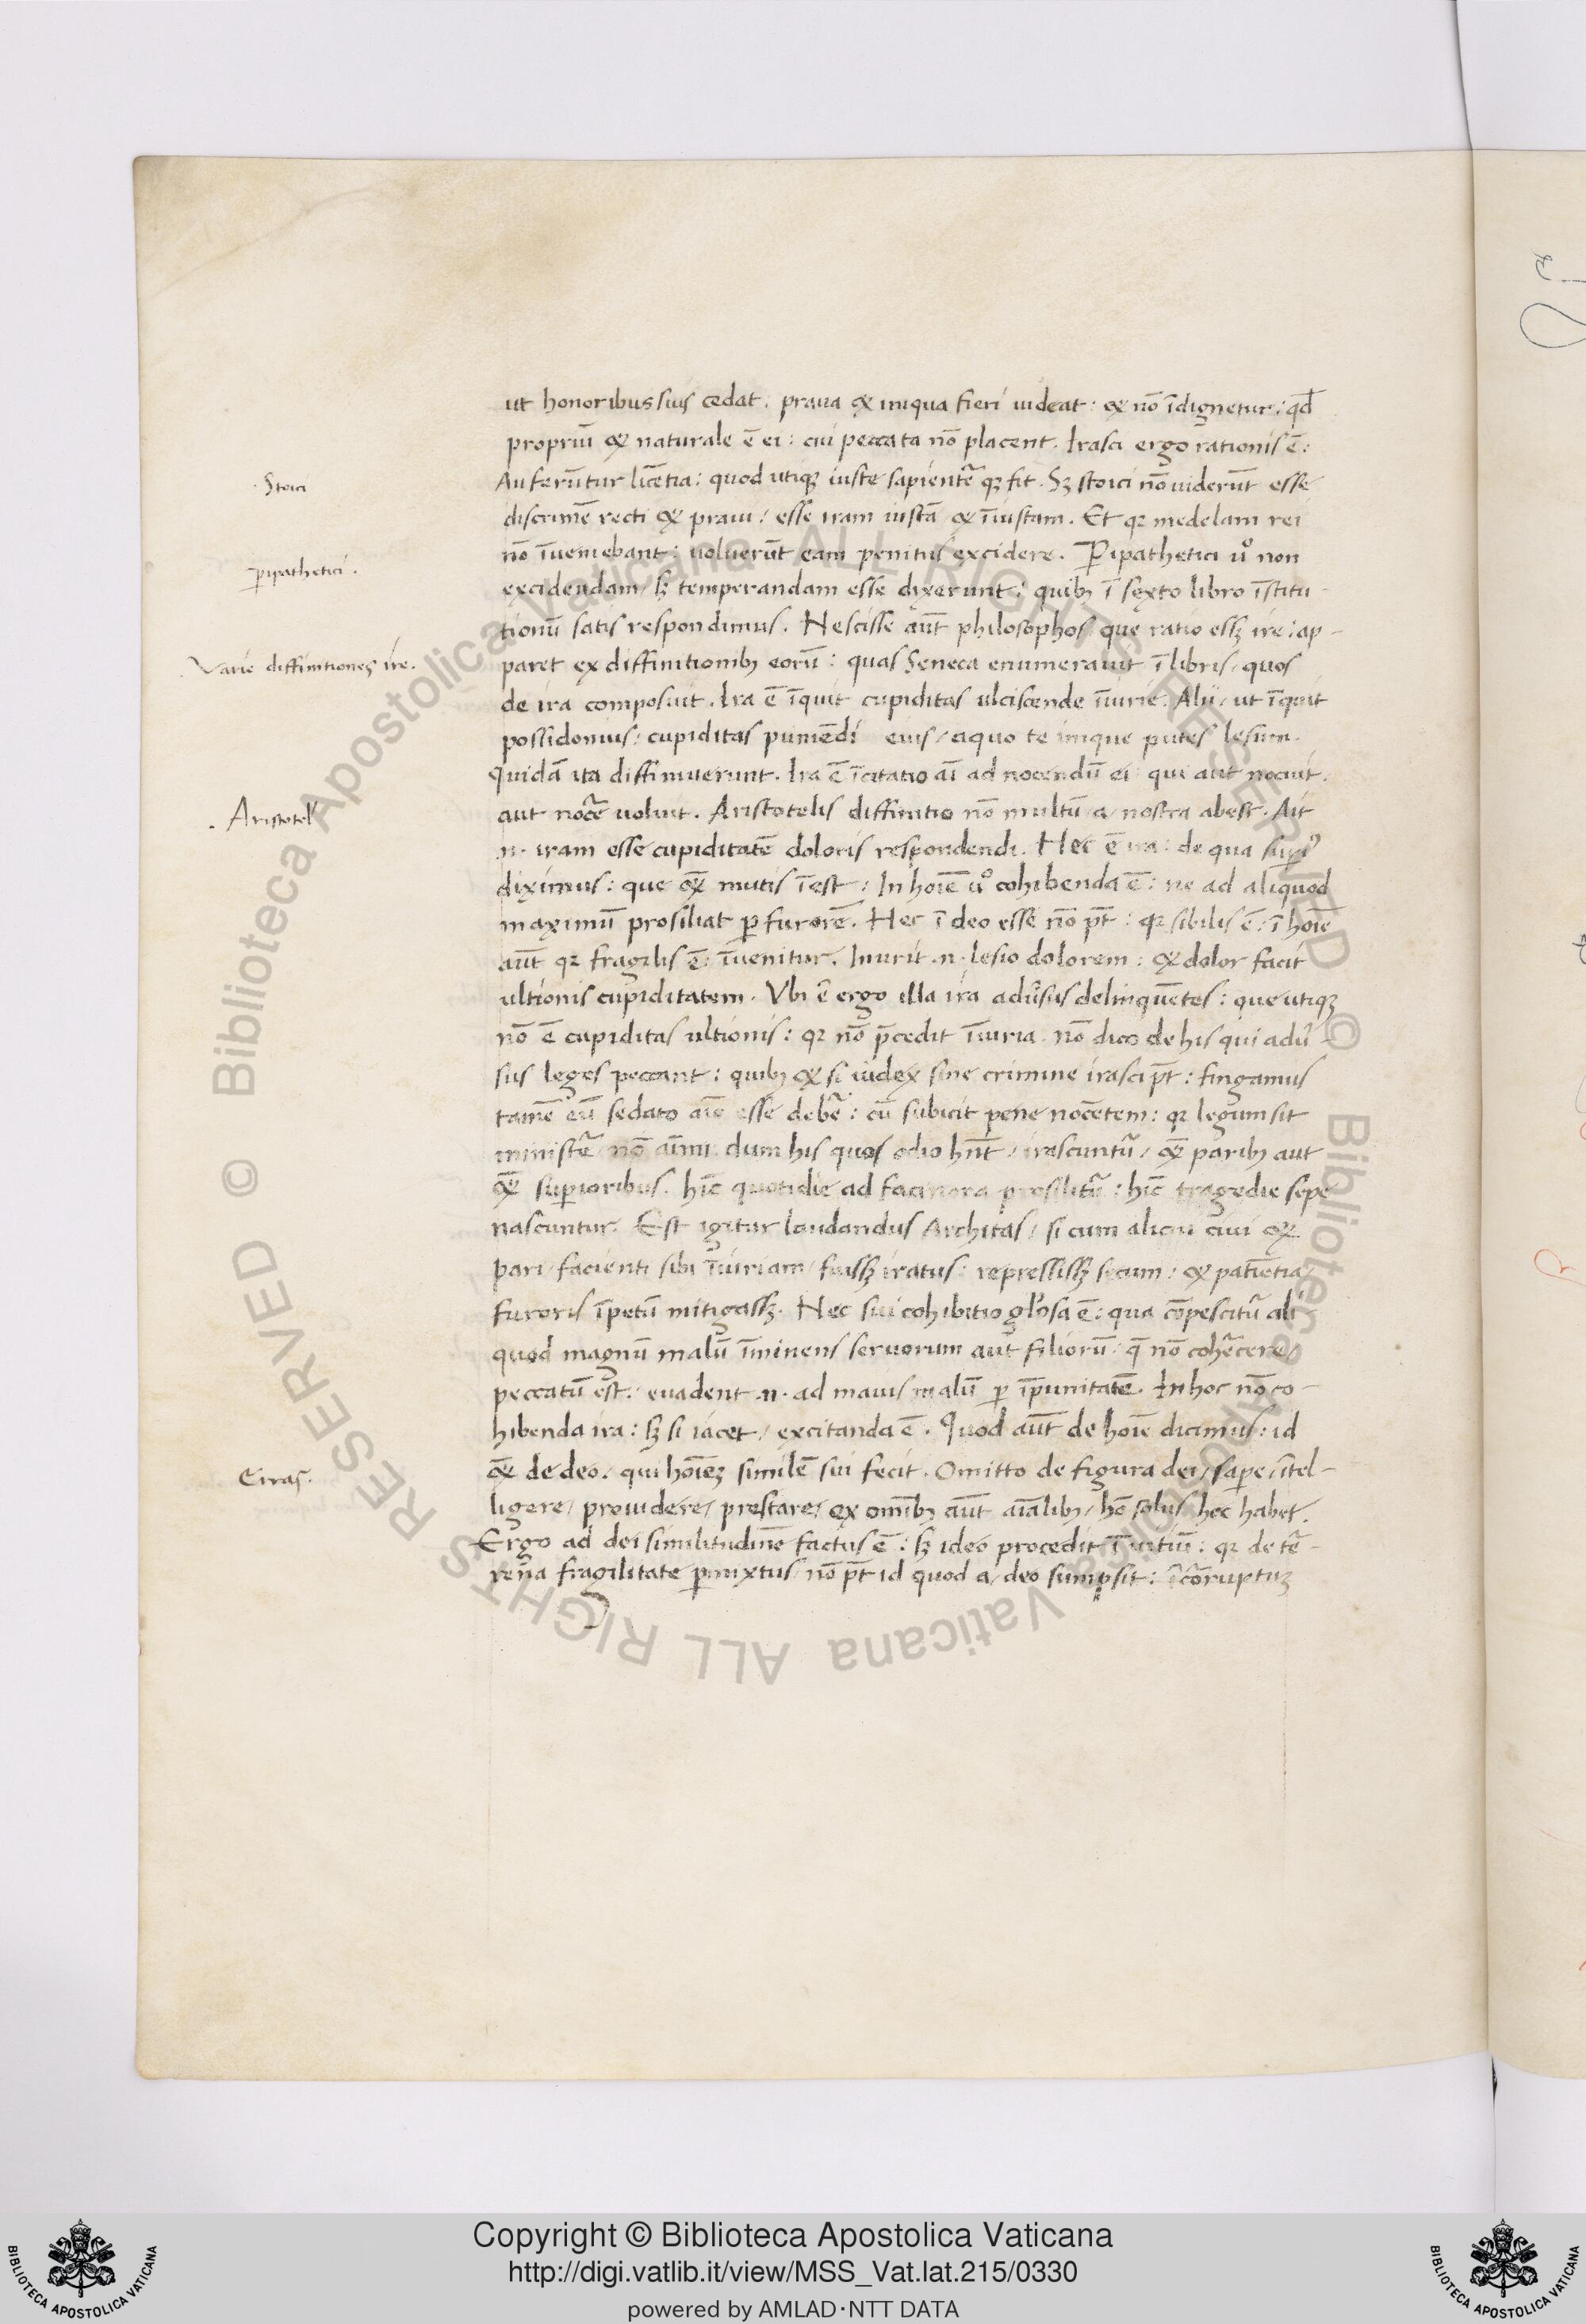 ut honoribus suis cedat. praua & iniqua fieri uideat: & nō īdignetur: qd̄
propriū & naturale ē ei: cui peccata nō placent. Irasci ergo rationis ē:
Stoici
Auferūtur licētia: quod utiqꝫ iuste sapient̄ qꝫ fit. Sꝫ stoici nō uiderūt esse
discrimē recti & praui / esse iram iustā & īiustam. Et qꝛ medelam rei
nō īueniebant: uoluerūt eam penitus excidere. Peripathetici uº non
peripathetici.
excidendam / sꝫ temperandam esse dixerunt: quibꝫ ī sexto libro īstitu-
tionū satis respondimus. Nescisse aūt philosophos que ratio essꝫ ire: ap-
Varie diffinitiones ire.
paret ex diffinitionibꝫ eorū: quas Seneca enumerauit ī libris / quos
de ira composuit. Ira ē īquit cupiditas ulciscende īiurie. Alii / ut īquit
possidonius / cupiditas puniēdi eius / aquo te inique putes lesum.
Quidā ita diffinierunt. Ira ē īcitatio aī ad nocendū ei qui aut nocuit.
Aristotel'
aut nocē uoluit. Aristotelis diffinitio nō multū a / nostra abest. Ait
.n. iram esse cupiditatē doloris respondendi. Hec ē ira: de qua supi'
diximus: que & mutis īest: In hoīe uº cohibenda ē: ne ad aliquod
maximū prosiliat ꝑ furorē. Hec ī deo esse nō pt̄: qꝛ sibilis ē: ī hoīe
aūt qꝛ fragilis ē: īuenitur. Inurit .n. lesio dolorem: & dolor facit
ultionis cupiditatem. Vbi ē ergo illa ira aduʾsus delinquētes: que utiqꝫ
nō ē cupiditas ultionis: qꝛ nō p̄cedit īiuria. nō dico de his qui aduʾ-
sus leges peccant: quibꝫ & si iudex sine crimine irasci pt̄: fingamus
tamē eū sedato aīo esse debē: cū subicit pene nocētem: qꝛ legum sit
ministē nō aīmi dum his quos odio hn̄t / irascuntū / & paribꝫ aut
& superioribus. hīc quotidie ad facinora prosilitū: hīc tragedie sepe
nascuntur. Est igitur laudandus Architas / si cum alicui ciui &
pari / facienti sibi īiuriam / fuissꝫ iratus: repressissꝫ se cum: & patiētia
furoris īpetū mitigassꝫ. Nec sui cohibitio gl'osa ē: qua cōpescitū ali
quod magnū malū īminens seruorum aut filiorū / q̄ nō cohercere /
peccatū est. / euadent .n. ad maius malū ꝑ īpunitatē. In hoc nō co-
hibenda ira: sꝫ si iacet / excitanda ē. Quod aūt de hoīe dicimus: id
Eiras.
& de deo. qui hoīeꝫ similē sui fecit. Omitto de figura dei / sape / ītel-
ligere / prouidere / prestare / ex omībꝫ aūt aīalibꝫ / hō solus hec habet.
Ergo ad dei similitudinē factus ē: sꝫ ideo procedit ī uitiū: qꝛ de tē-
rena fragilitate ꝑmixtus / nō pt̄ id quod a / deo sumpsit: īcōruptuꝫ
Copyright © Biblioteca Apostolica Vaticana
http://digi.vatlib.it/view/MSS_Vat.lat.215/0330
powered by AMLAD·NTT DATA
© Biblioteca Apostolica Vaticana ALL RIGHTS RESERVED
© Biblioteca Apostolica Vaticana ALL RIGHTS RESERVED
BIBLIOTECA APOSTOLICA VATICANA
BIBLIOTECA APOSTOLICA VATICANA